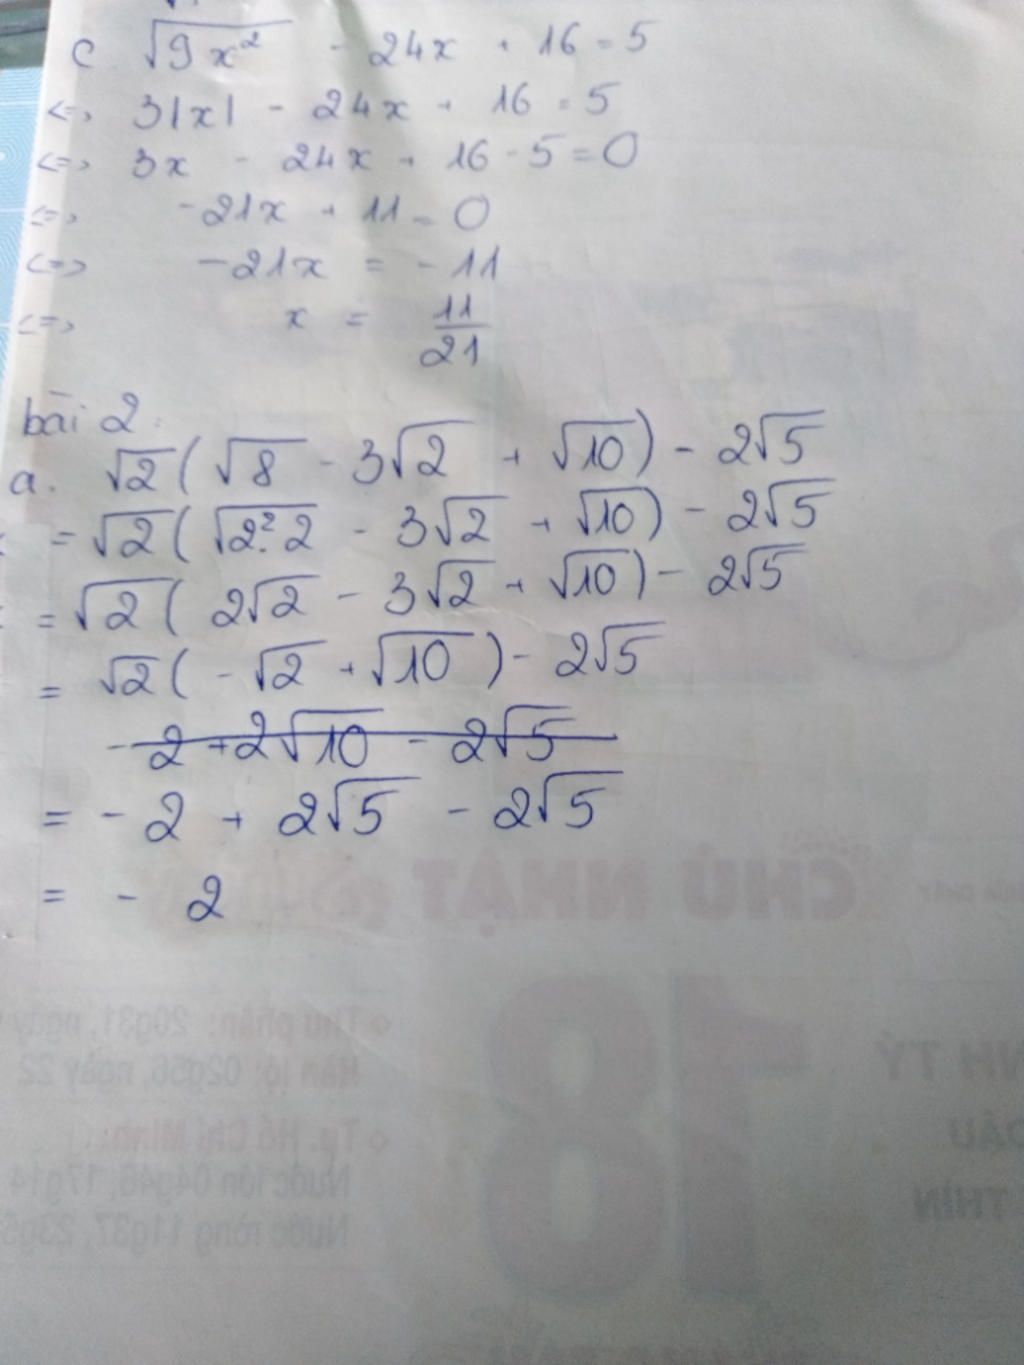 c √9x² - 24x + 16 = 5
<=> 3|x| - 24x + 16 = 5
<=> 3x - 24x + 16 - 5 = 0
<=> -21x + 11 = 0
<=> -21x = -11
<=> x = 11/21
bài 2:
a. √2(√8 - 3√2 + √10) - 2√5
= √2(√2².2 - 3√2 + √10) - 2√5
= √2(2√2 - 3√2 + √10) - 2√5
= √2(-√2 + √10) - 2√5
-2 + 2√10 - 2√5
= -2 + 2√5 - 2√5
= -2
CHỦ NHẬT
18
Thủ phận: 20g31, ngày
Hàn lộ: 02g56, ngày 22
Tp. Hồ Chí Minh:
Nước lớn 04g46, 17g14
Nước ròng 11g37, 23g5
NH TÝ
THÌN